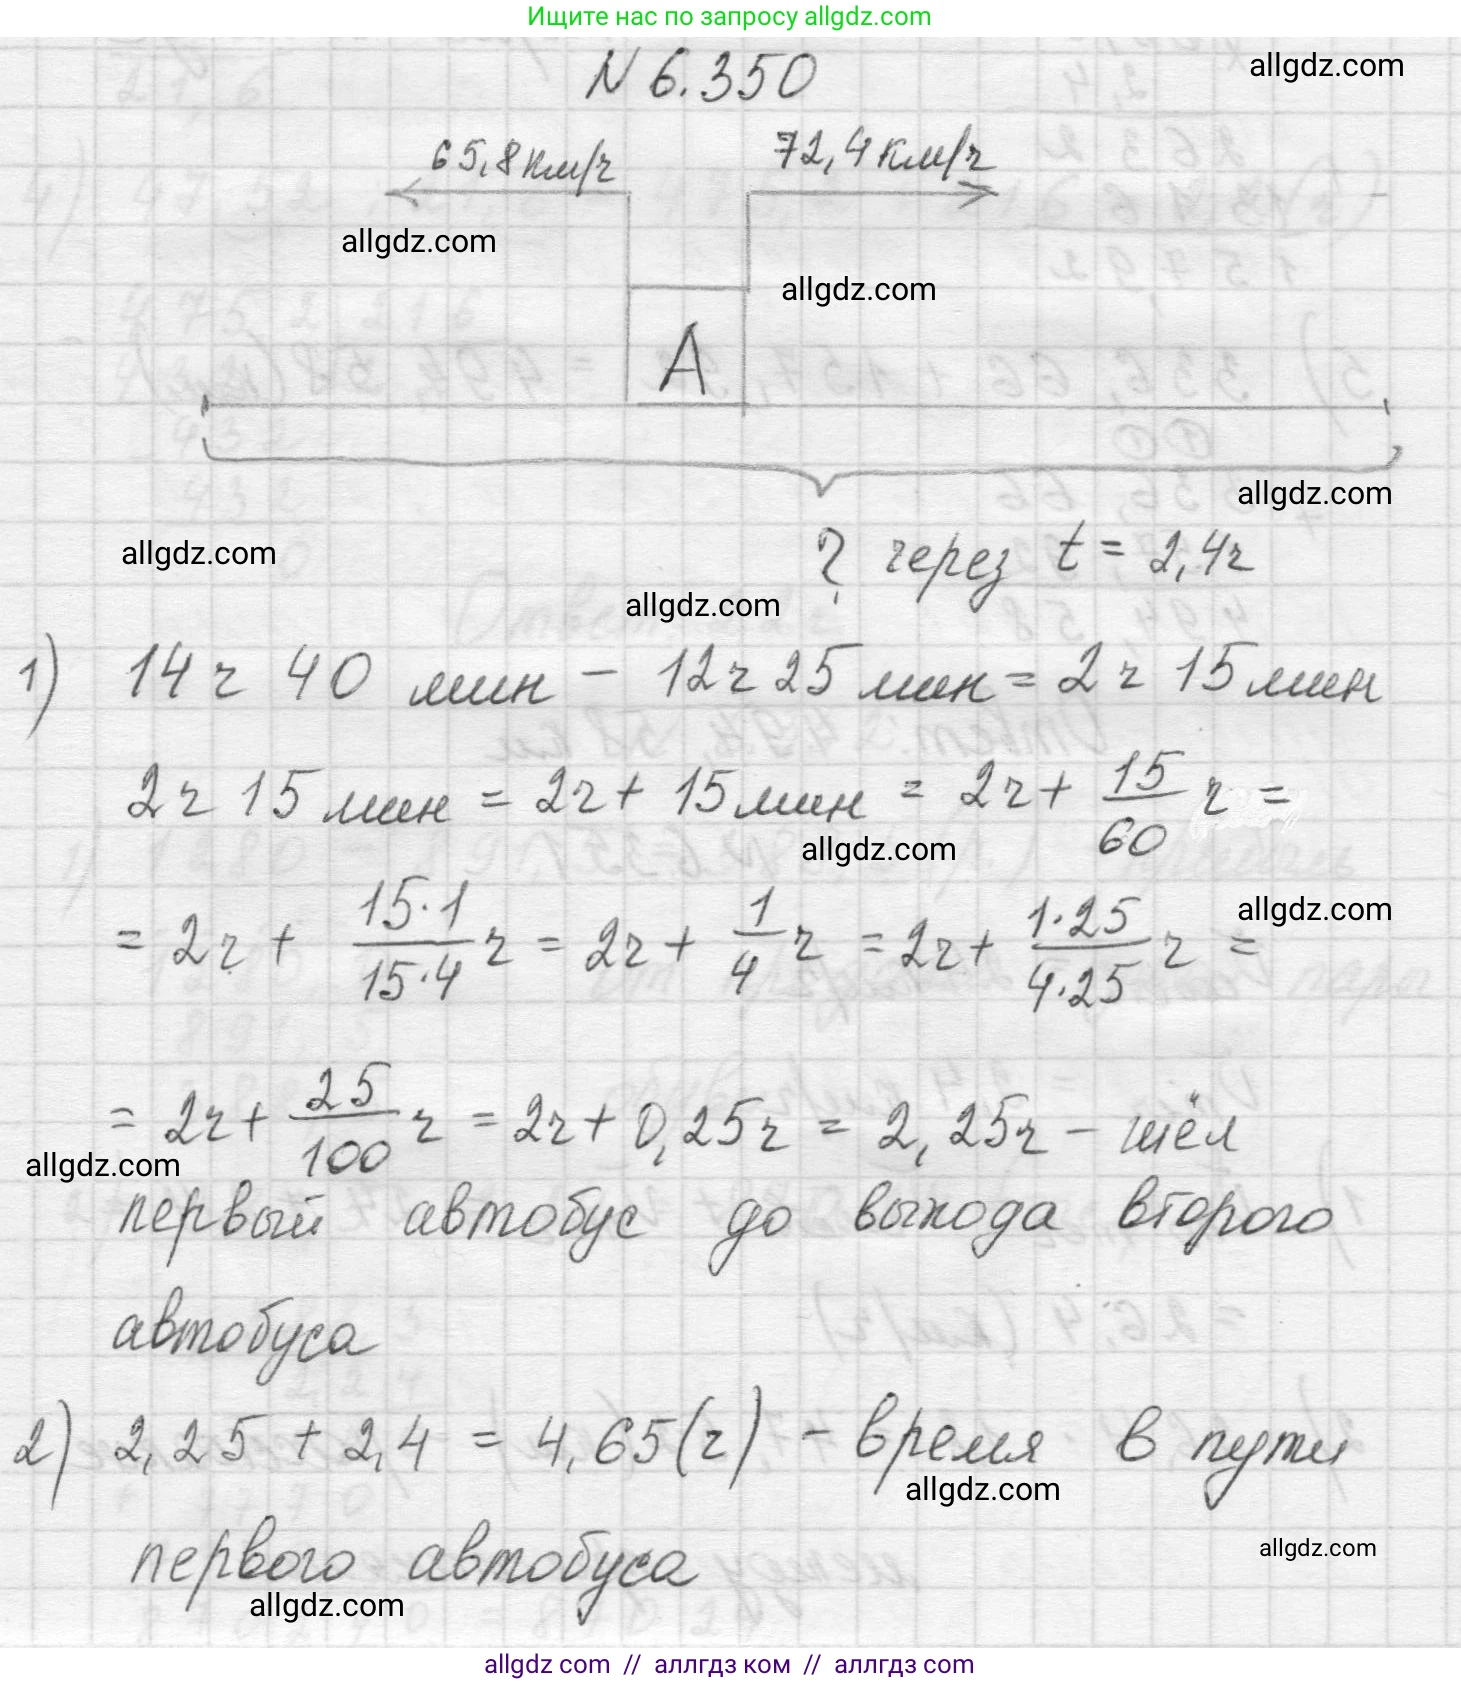 Ищите нас по запросу allgdz.com
N 6.350
allgdz.com
65,8 км/ч
72,4 км/ч
allgdz.com
allgdz.com
А
allgdz.com
allgdz.com
? через t = 2,4ч
allgdz.com
1) 14 ч 40 мин - 12 ч 25 мин = 2 ч 15 мин
2 ч 15 мин = 2ч + 15 мин = 2ч + 15/60 ч =
allgdz.com
allgdz.com
= 2ч + 15·1/15·4 ч = 2ч + 1/4 ч = 2ч + 1·25/4·25 ч =
= 2ч + 25/100 ч = 2ч + 0,25ч = 2,25ч - шёл
allgdz.com
первый автобус до выхода второго
автобуса
2) 2,25 + 2,4 = 4,65 (ч) - время в пути
allgdz.com
первого автобуса
allgdz.com
allgdz.com
allgdz com // аллгдз ком // аллгдз com